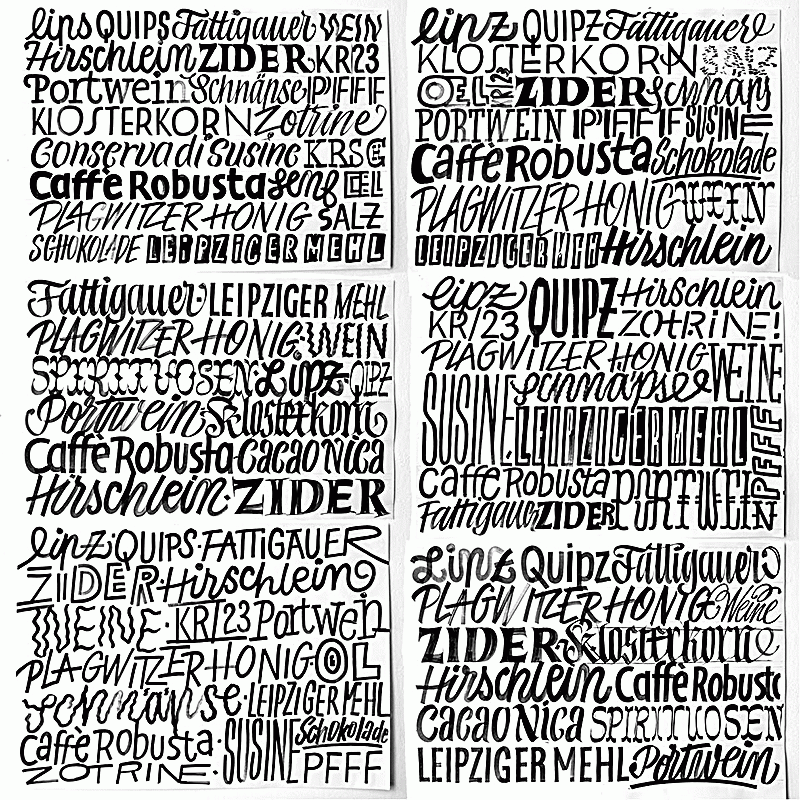 Lips QUIPS Fattigauer WEIN
Hirschlein ZIDER KR/23
Portwein Schnäpse PFIFF
KLOSTERKORN Zotrine
Conserva di Susine KRS
Caffè Robusta Senf OEL
PLAGWITZER HONIG SALZ
SCHOKOLADE LEIPZIGER MEHL
Fattigauer LEIPZIGER MEHL
PLAGWITZER HONIG·WEIN
SPIRITUOSEN·Lipz·QIPZ
Portwein·Klosterkorn
Caffè Robusta Cacao Nica
Hirschlein·ZIDER
Lipz·QUIPS·FATTIGAUER
ZIDER·Hirschlein
WEINE·KR/23 Portwein
PLAGWITZER HONIG·OL
Schnäpse·LEIPZIGER MEHL
Caffè Robusta·SUSINE Schokolade
ZOTRINE·PFFF
Linz QUIPZ Fattigauer
KLOSTERKORN SALZ
OEL KR/23 ZIDER Schnäps
PORTWEIN PFIFF SUSINE
Caffè Robusta Schokolade
PLAGWITZER HONIG WEIN
LEIPZIGER MEHL Hirschlein
Lipz QUIPZ Hirschlein
KR/23 ZOTRINE!
PLAGWITZER HONIG WEINE
SUSINE Schnäpse
LEIPZIGER MEHL PFFFF
Caffè Robusta PORTWEIN
Fattigauer ZIDER
Linz Quipz Fattigauer
PLAGWITZER HONIG Weine
ZIDER·Klosterkorn
Hirschlein Caffè Robusta
Cacao Nica SPIRITUOSEN
LEIPZIGER MEHL Portwein